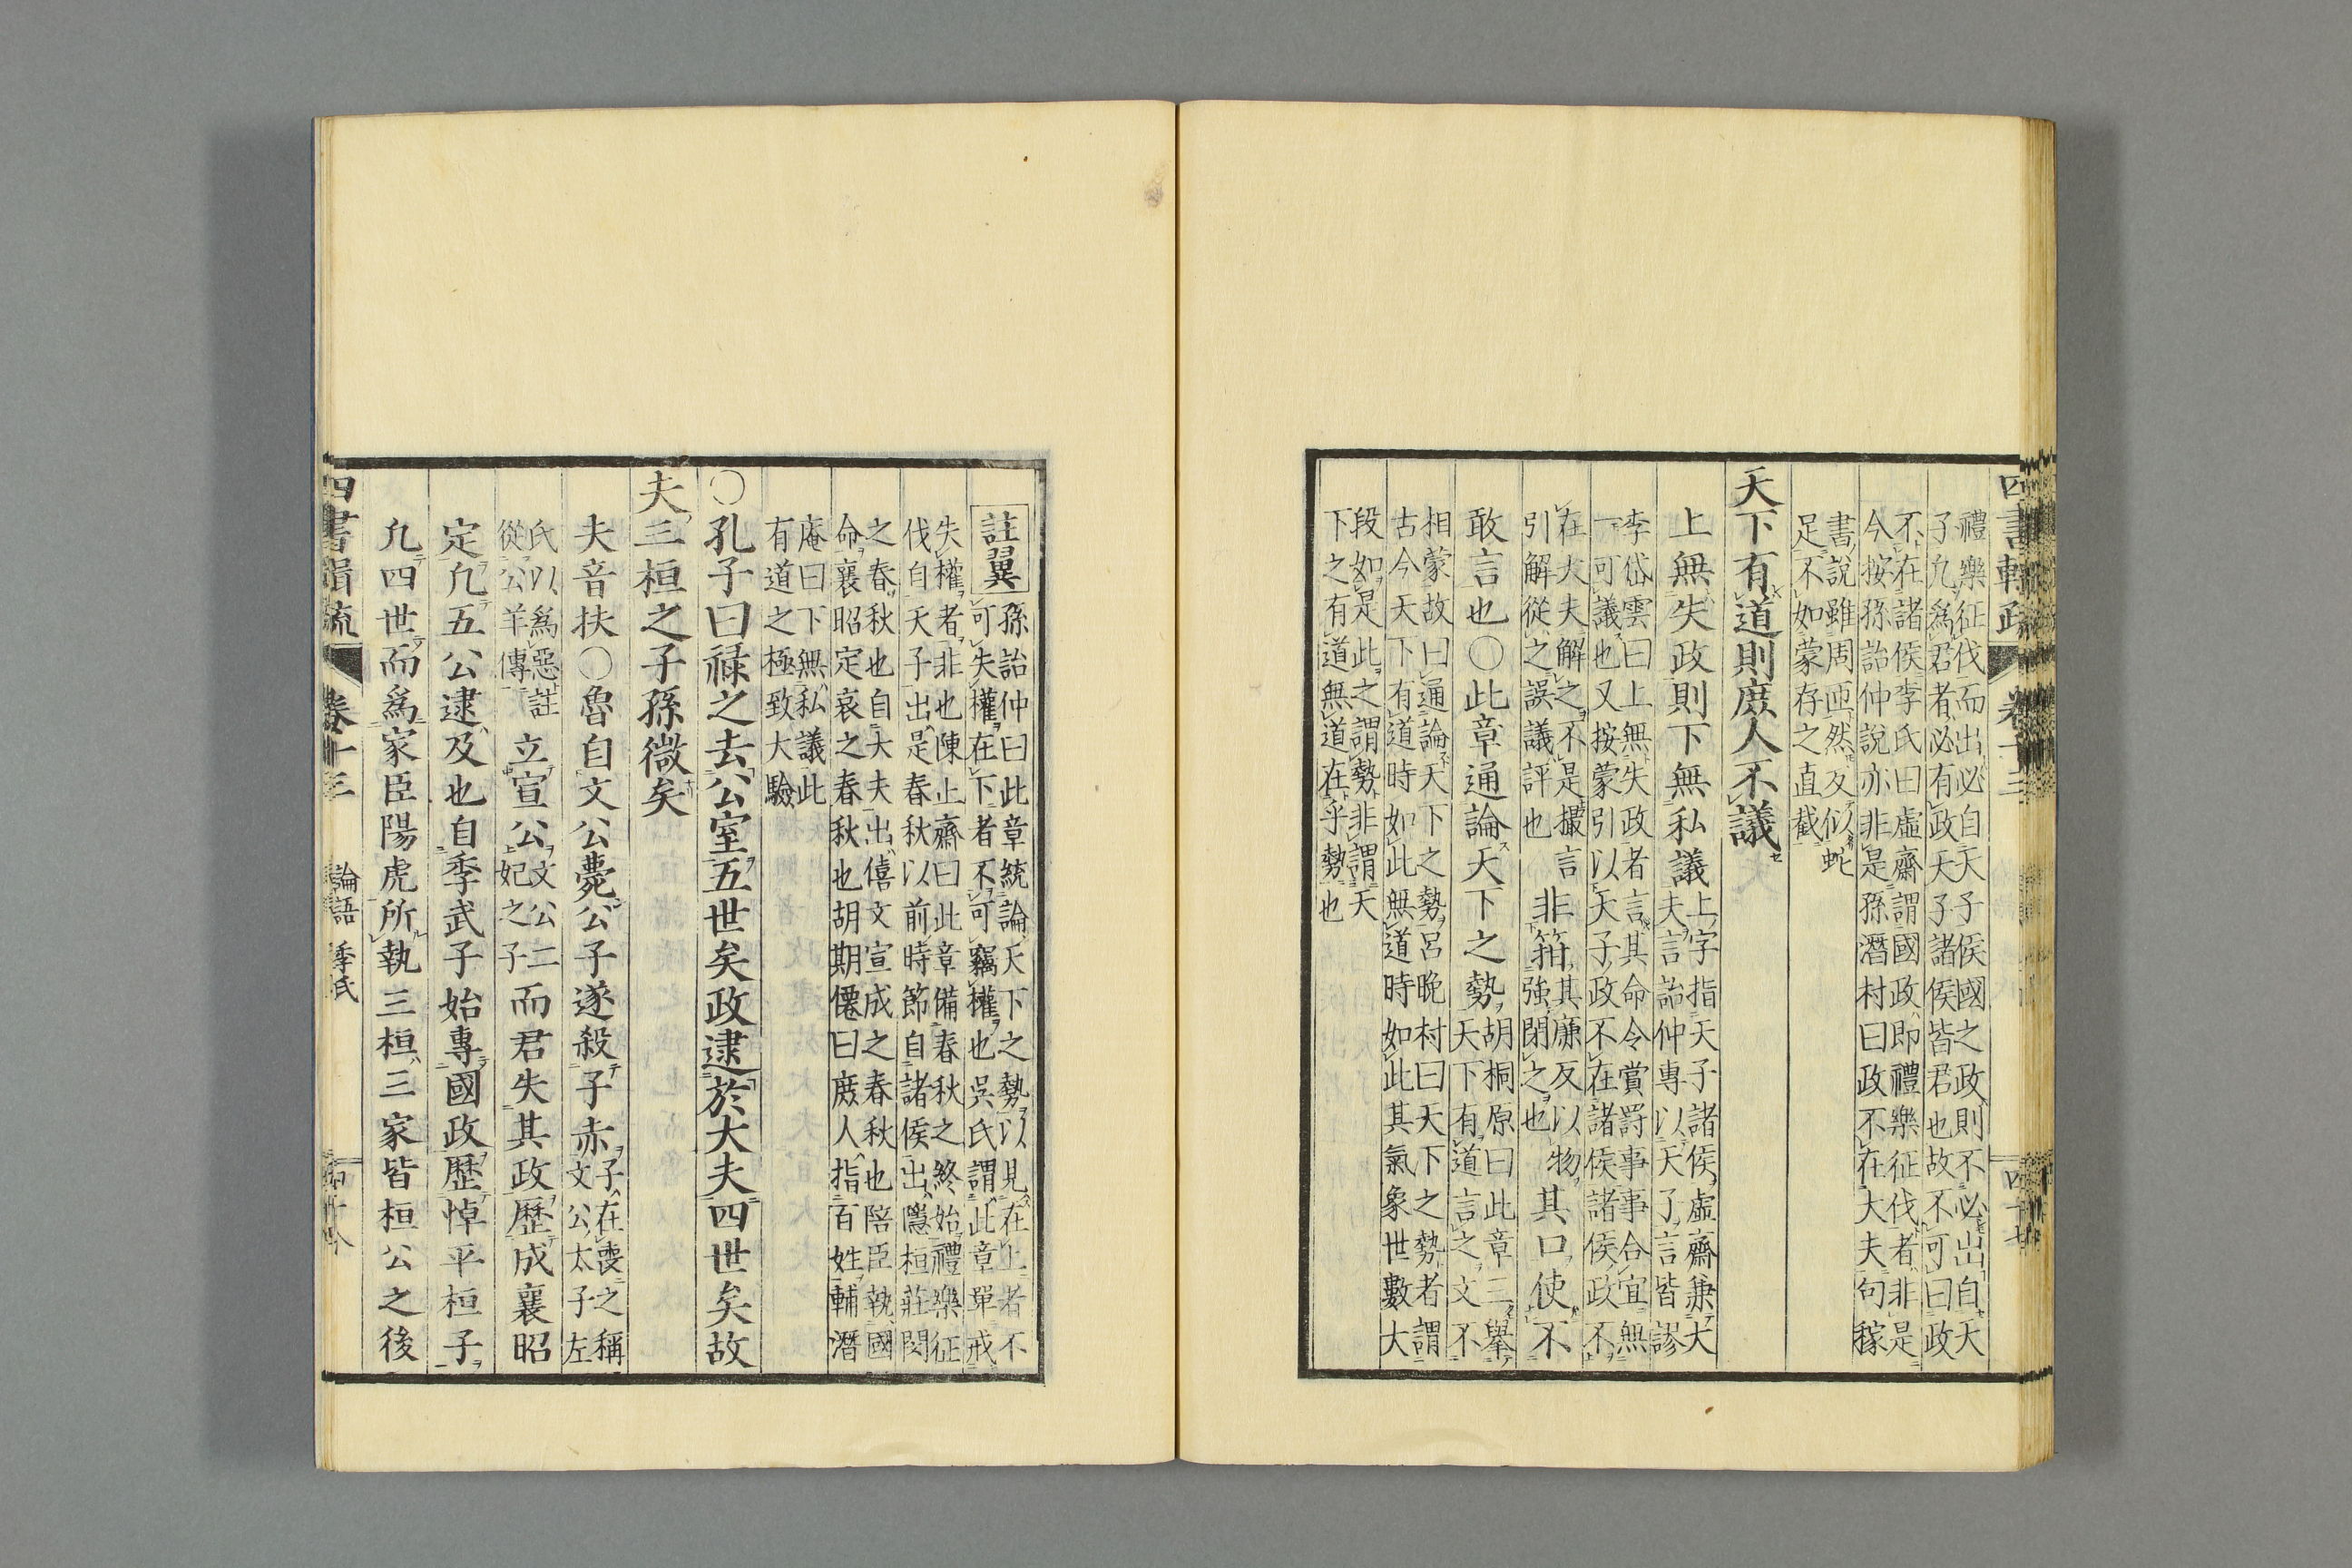 四書輯疏 卷十三 四十七
禮樂征伐而出必自天子侯國之政則不必出自天
子凡爲君者必有政天子諸侯皆君也故不可曰政
不在諸侯李氏曰虛齋謂國政即禮樂征伐者非是
今按孫詒仲說亦非是孫潛村曰政不在大夫句稼
書說雖周匝然反似蛇
足不如蒙存之直截
天下有道則庶人不議
上無失政則下無私議
上字指天子諸侯虛齋兼大
夫言詒仲專以天了言皆謬
李岱雲曰上無失政者言其命令賞罰事事合宜無
一可議也又按蒙引以天子政不在諸侯諸侯政不
在大夫解之不是攥言
引解從之誤議評也
非箝
其廉反以物
強閉之也
其口使不
敢言也○此章通論天下之勢
胡桐原曰此章三擧
天下有道言之文不
相蒙故曰通論天下之勢呂晩村曰天下之勢者謂
古今天下有道時如此無道時如此其氣象世數大
段如是此之謂勢非謂天
下之有道無道在乎勢也
註翼
孫詒仲曰此章統論天下之勢以見在上者不
可失權在下者不可竊權也吳氏謂此章單戒
失權者非也陳止齋曰此章備春秋之終始禮樂征
伐自天子出是春秋以前時節自諸侯出隱桓莊閔
之春秋也自大夫出僖文宣成之春秋也陪臣執國
命襄昭定哀之春秋也胡期僊曰庶人指百姓輔潛
庵曰下無私議此
有道之極致大驗
○孔子曰祿之去公室五世矣政逮於大夫四世矣故
夫三桓之子孫微矣
夫音扶○魯自文公薨公子遂殺子赤
子在喪之稱
文公太子左
氏以爲惡註
從公羊傳
立宣公
文公二
妃之子
而君失其政歷成襄昭
定凡五公逮及也自季武子始專國政歷悼平桓子
凡四世而爲家臣陽虎所執三桓三家皆桓公之後
四書輯疏 卷十三 論語 季氏 四十八